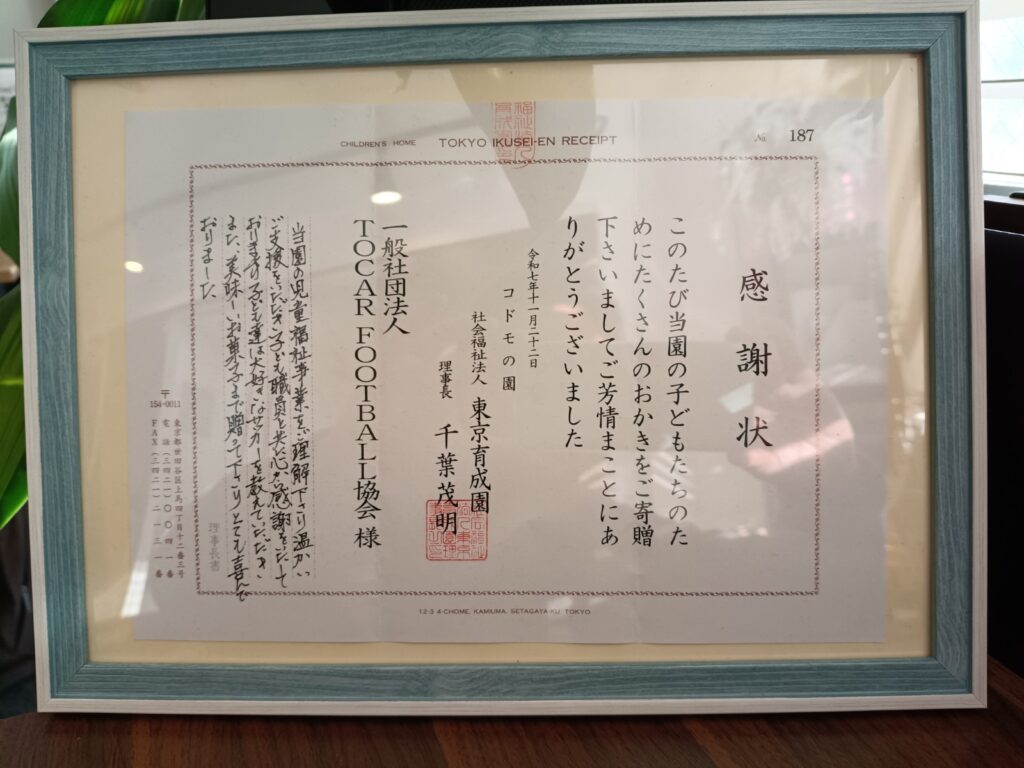 CHILDREN'S HOME TOKYO IKUSEI-EN RECEIPT № 187
感謝状
このたび当園の子どもたちのた
めにたくさんのおかきをご寄贈
下さいましてご芳情まことにあ
りがとうございました
令和七年十一月二十二日
コドモの園
社会福祉法人 東京育成園
理事長 千葉茂明
一般社団法人
TOCAR FOOTBALL協会 様
当園の児童福祉事業をご理解下さり温かい
ご支援をいただき子ども職員と共に心から感謝をいたして
おります子ども達は大好きなサッカーを教えていただき
また、美味しいお菓子まで贈って下さりとても喜んで
おりました
理事長書
〒154-0011 東京都世田谷区上馬四丁目十二番三号
電話(三四二一)〇〇四一番
FAX(三四二一)二一三一番
12-3 4-CHOME, KAMIUMA, SETAGAYA-KU, TOKYO